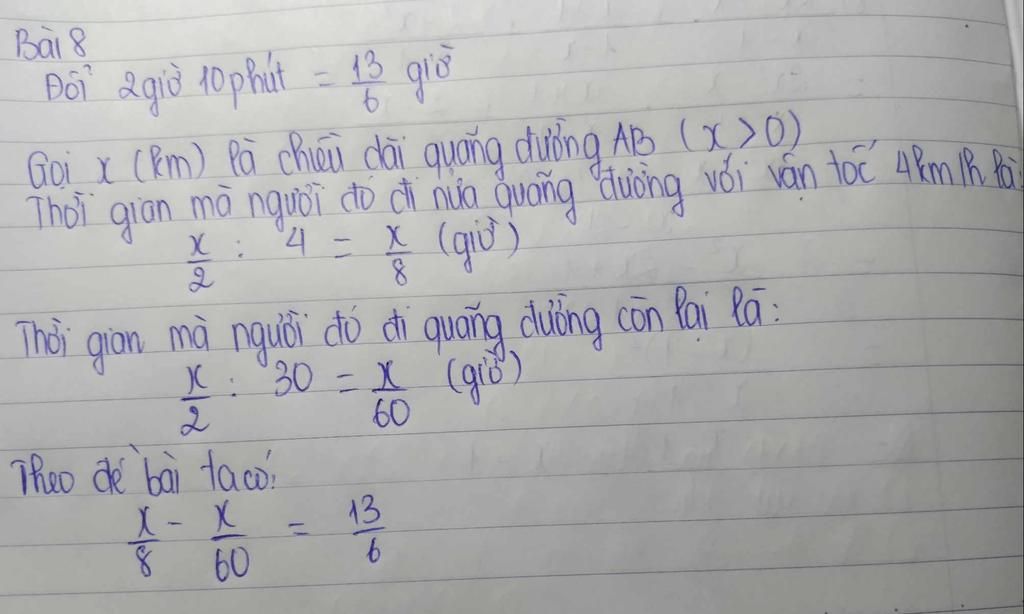 Bài 8
Đổi 2 giờ 10 phút = 13/6 giờ
Gọi x (km) là chiều dài quãng đường AB (x > 0)
Thời gian mà người đó đi nửa quãng đường với vận tốc 4km/h là:
x/2 : 4 = x/8 (giờ)
Thời gian mà người đó đi quãng đường còn lại là:
x/2 : 30 = x/60 (giờ)
Theo đề bài ta có:
x/8 - x/60 = 13/6